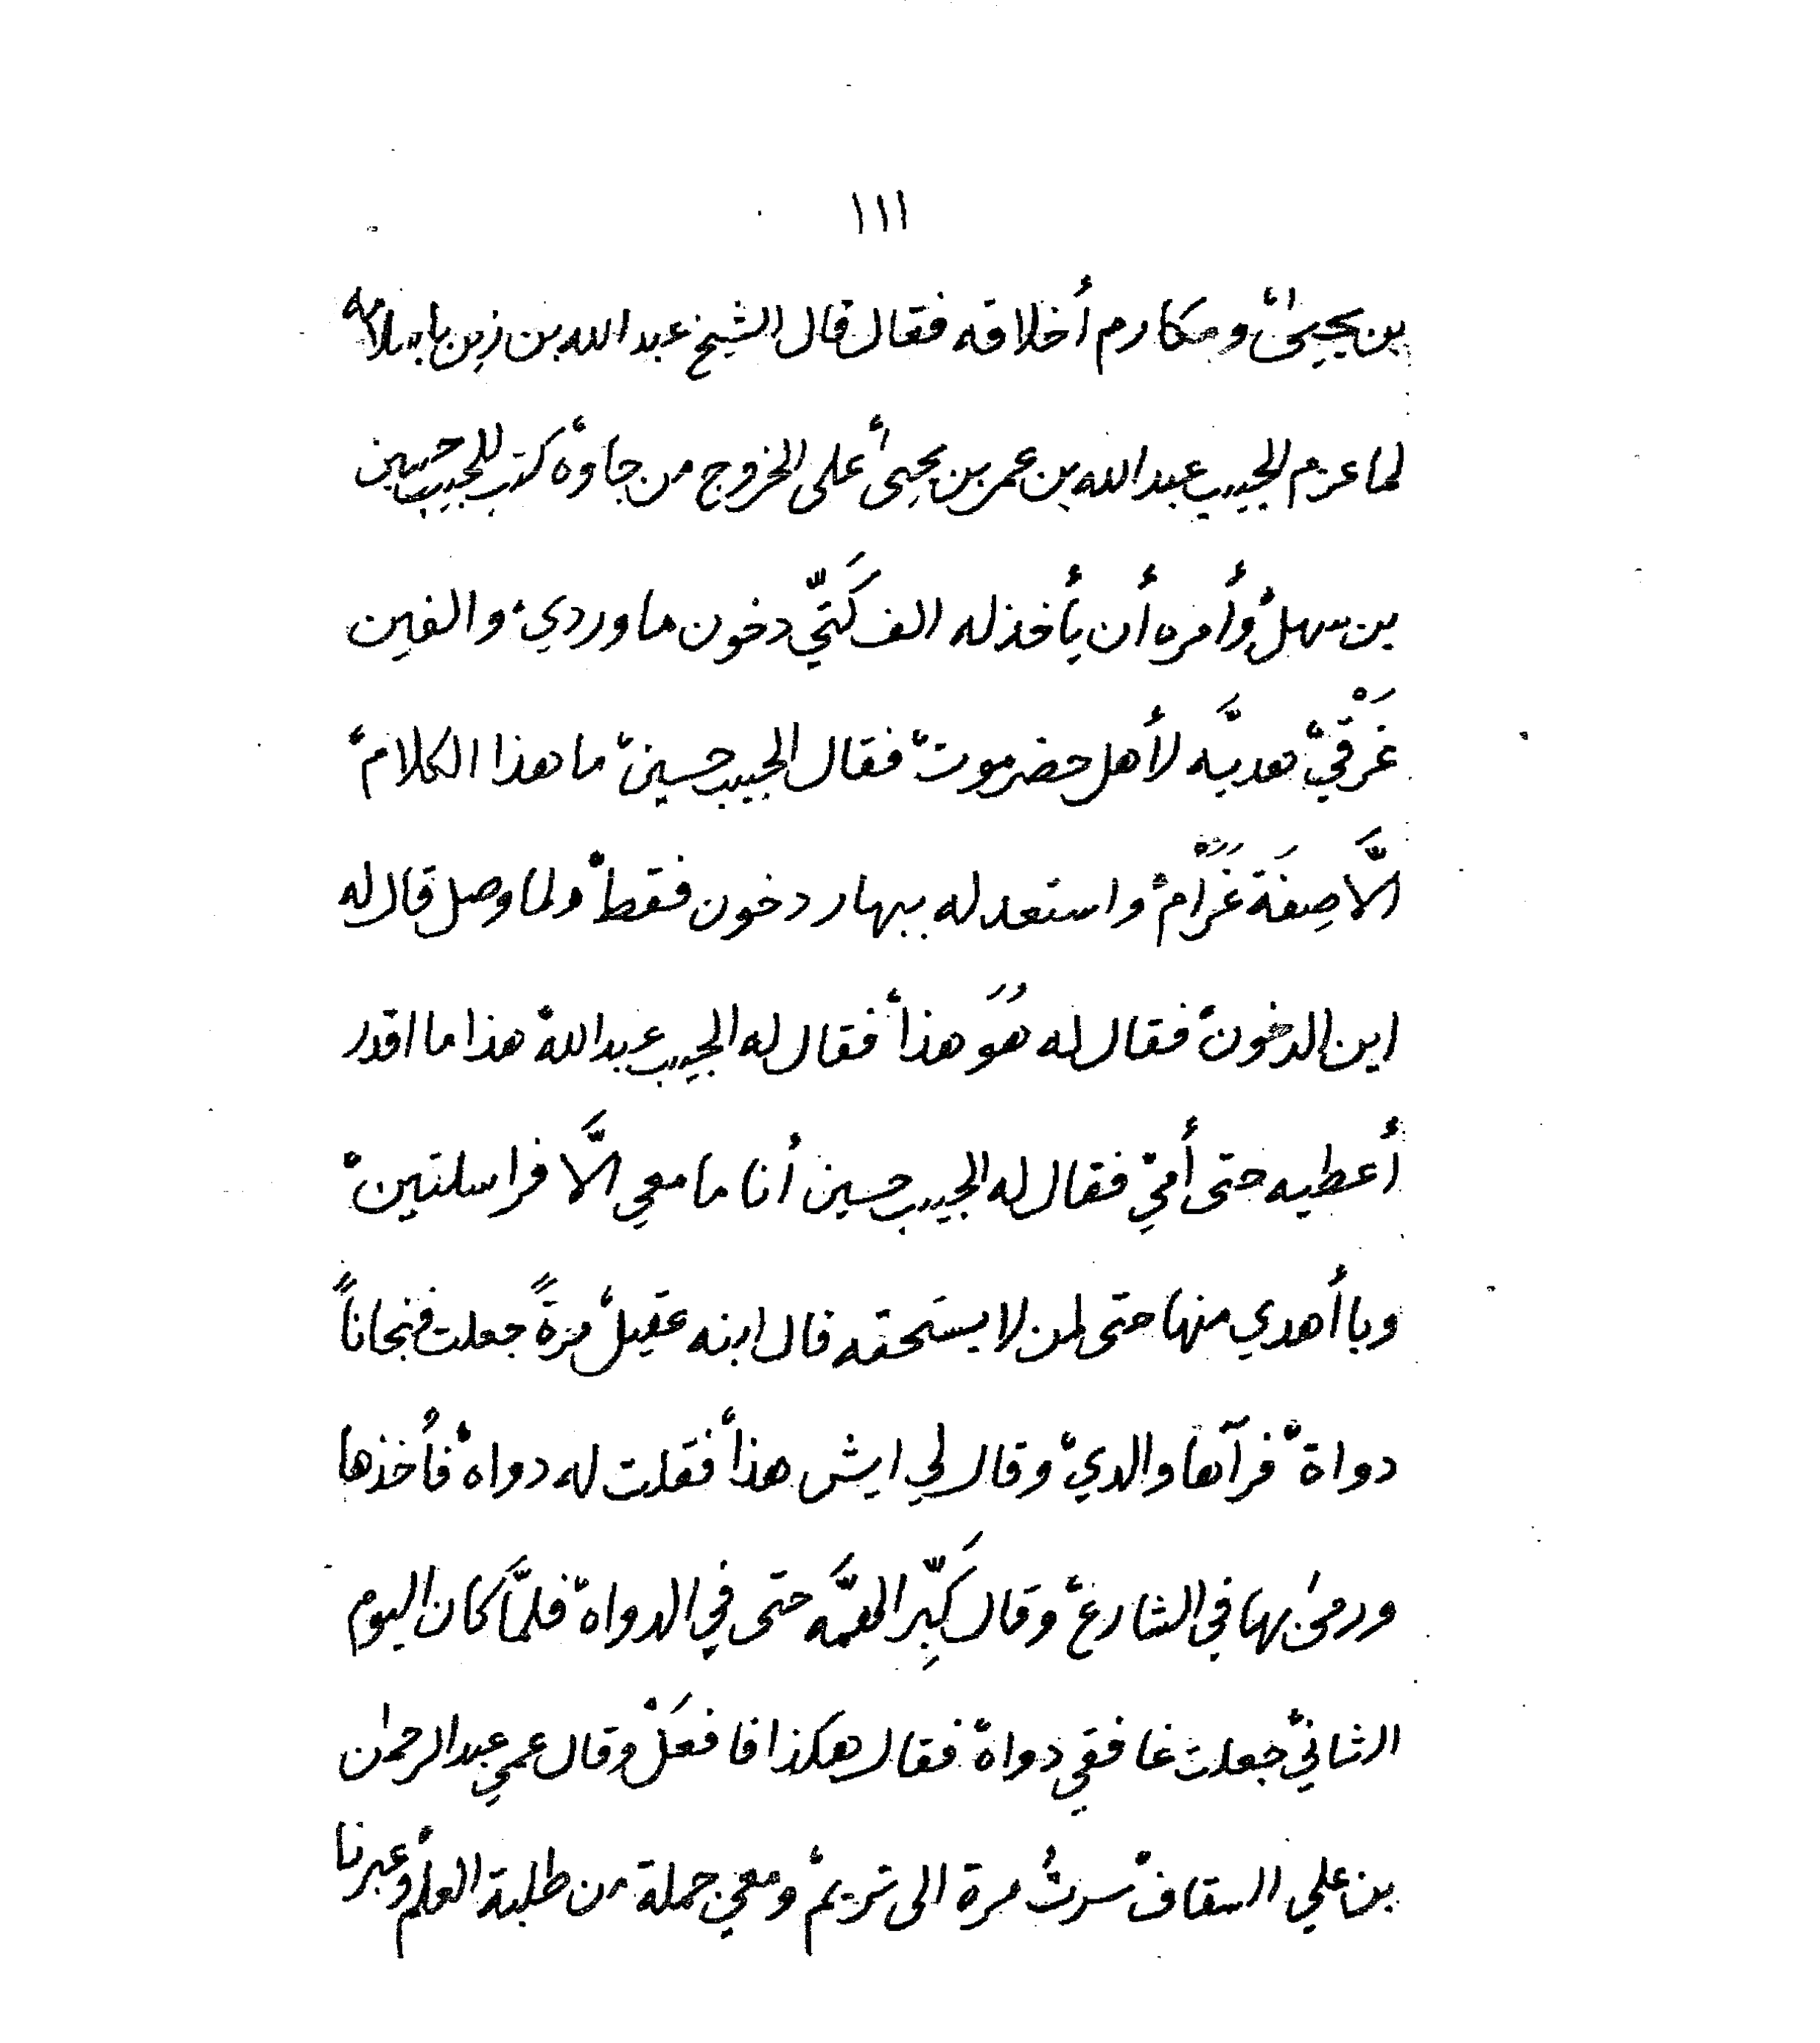 ١١١
بن يحيىٰ ومكارم أخلاقه فقال قال الشيخ عبدالله بن زين باسلامه
لما عزم الحبيب عبدالله بن عمر بن يحيىٰ على الخروج من جاوة كتب للحبيب حسين
بن سهل وأمره أن يأخذ له الف كَتّي دخون ماوردي والفين
غَرْقي هديَّه لأهل حضرموت فقال الحبيب حسين ما هذا الكلام
الَّا صِفَة غَرَام واستعد له ببهار دخون فقط ولما وصل قال له
اين الدخون فقال له هُوَ هذا فقال له الحبيب عبدالله هذا ما اقدر
أعطيه حتى أمي فقال له الحبيب حسين أنا ما معي الَّا فراسلتين
وبا أهدي منها حتى لمن لا يستحقه قال ابنه عقيل مرةً جعلت فنجاناً
دواة فرآها والدي وقال لي ايش هذا فقلت له دواه فأخذها
ورمىٰ بها في الشارع وقال كَبِّر الهمَّه حتى في الدواة فلمَّا كان اليوم
الثاني جعلت غافقي دواة فقال هكذا فافعَلْ وقال عمي عبدالرحمٰن
بن علي السقاف سرتُ مرة الى تريم ومعي جملة من طلبة العلم وعبرنا